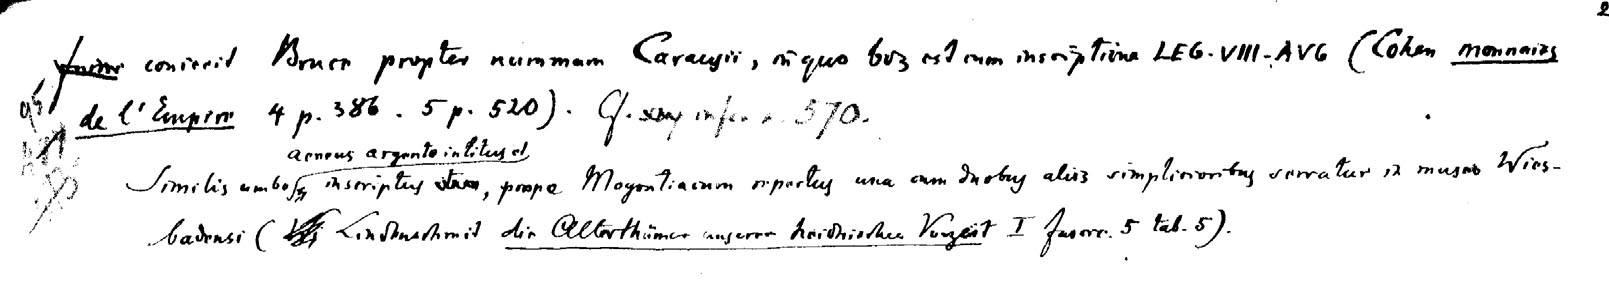 2
fuisse coniecit Bruce propter nummum Carausii, in quo bos est cum inscriptione LEG·VIII·AVG (Cohen monnaies
de l'Empire 4 p. 386. 5 p. 520). Cf. infra n. 570.
aeneus argento intitus et
Similis umbo inscriptus, prope Mogontiacum repertus una cum duobus aliis simplicioribus servatur in museo Wies-
badensi (Lindenschmit die Alterthümer unserer heidnischen Vorzeit I fasc. 5 tab. 5).